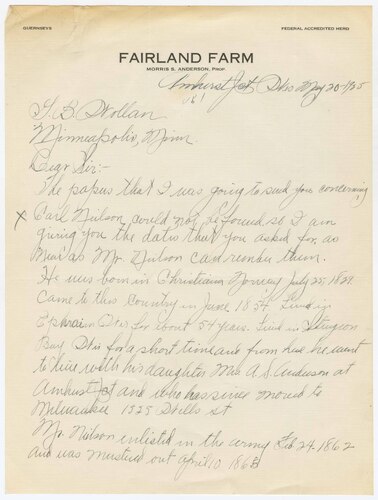 GUERNSEYS
FEDERAL ACCREDITED HERD
FAIRLAND FARM
MORRIS S. ANDERSON, PROP.
Amherst Jct, Wis May 20 - 1935
Minneapolis, Minn.
Dear Sir:-
The papers that I was going to send you concerning
X Carl Neilson, could not be found so I am
giving you the dates that you asked for, as
near as Mr. Neilson can remember them.
He was born in Christiania Norway July 25, 1829.
Came to this Country in June 1854. Lived in
Ephraim Wis for about 54 years. Lived in Sturgeon
Bay Wis for a short time and from here he went
to live with his daughter Mrs A. S. Anderson at
Amherst Jct and who has since moved to
Milwaukee 1329 st
Mr. Neilson enlisted in the army Feb 24 1862
and was mustered out april 10 1865